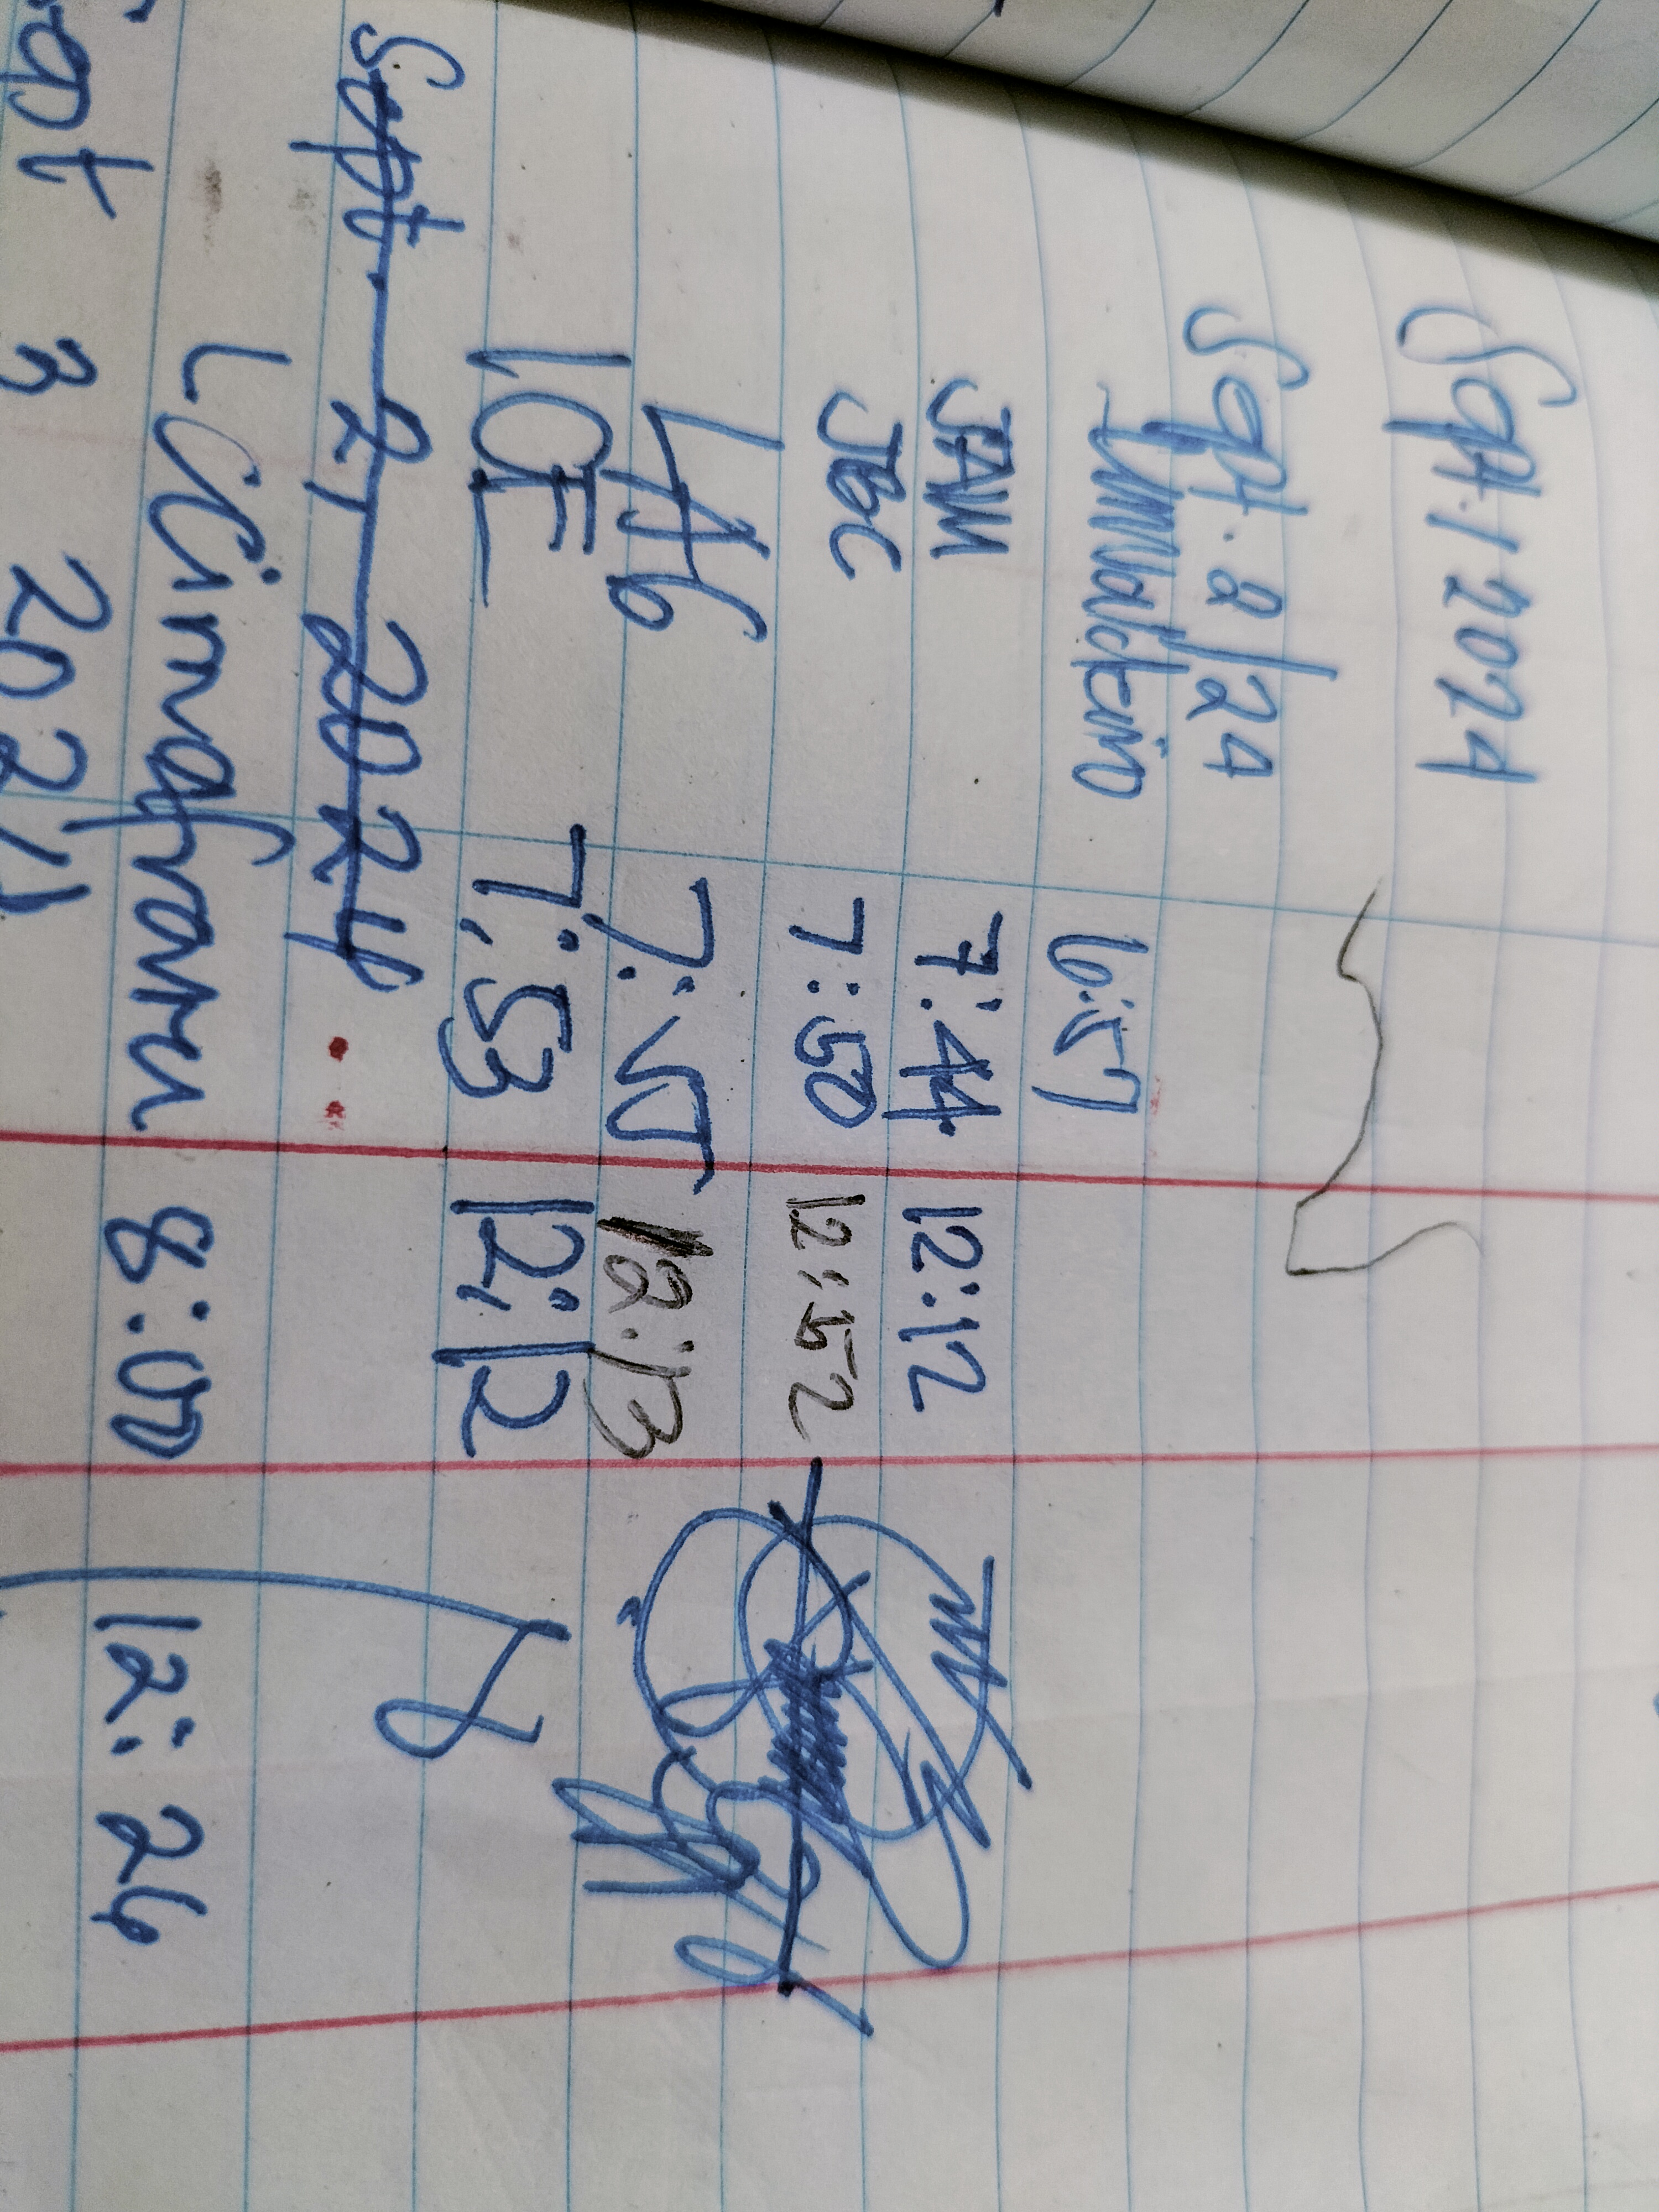 Sept. 1 2024
Sept. 2/24
6:57
JAM 7:44 12:12
JBC 7:50 12:52
LAG 7:55 12:13
ICE 7:53 12:12
Sept. 2, 2024
8:00 12:26
Sept 3 2024